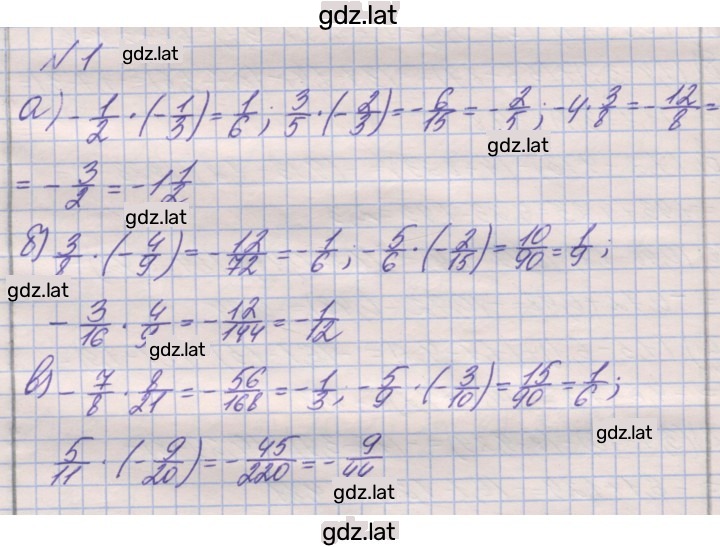 gdz.lat
№1 gdz.lat
а) -1/2 · (-1/3) = 1/6; 3/5 · (-2/3) = -6/15 = -2/5; -4 · 3/8 = -12/8 =
gdz.lat
= -3/2 = -1 1/2
gdz.lat
б) 3/8 · (-4/9) = -12/72 = -1/6; -5/6 · (-2/15) = 10/90 = 1/9;
gdz.lat
-3/16 · 4/9 = -12/144 = -1/12
gdz.lat
в) -7/8 · 8/21 = -56/168 = -1/3; -5/9 · (-3/10) = 15/90 = 1/6;
gdz.lat
5/11 · (-9/20) = -45/220 = -9/44
gdz.lat
gdz.lat